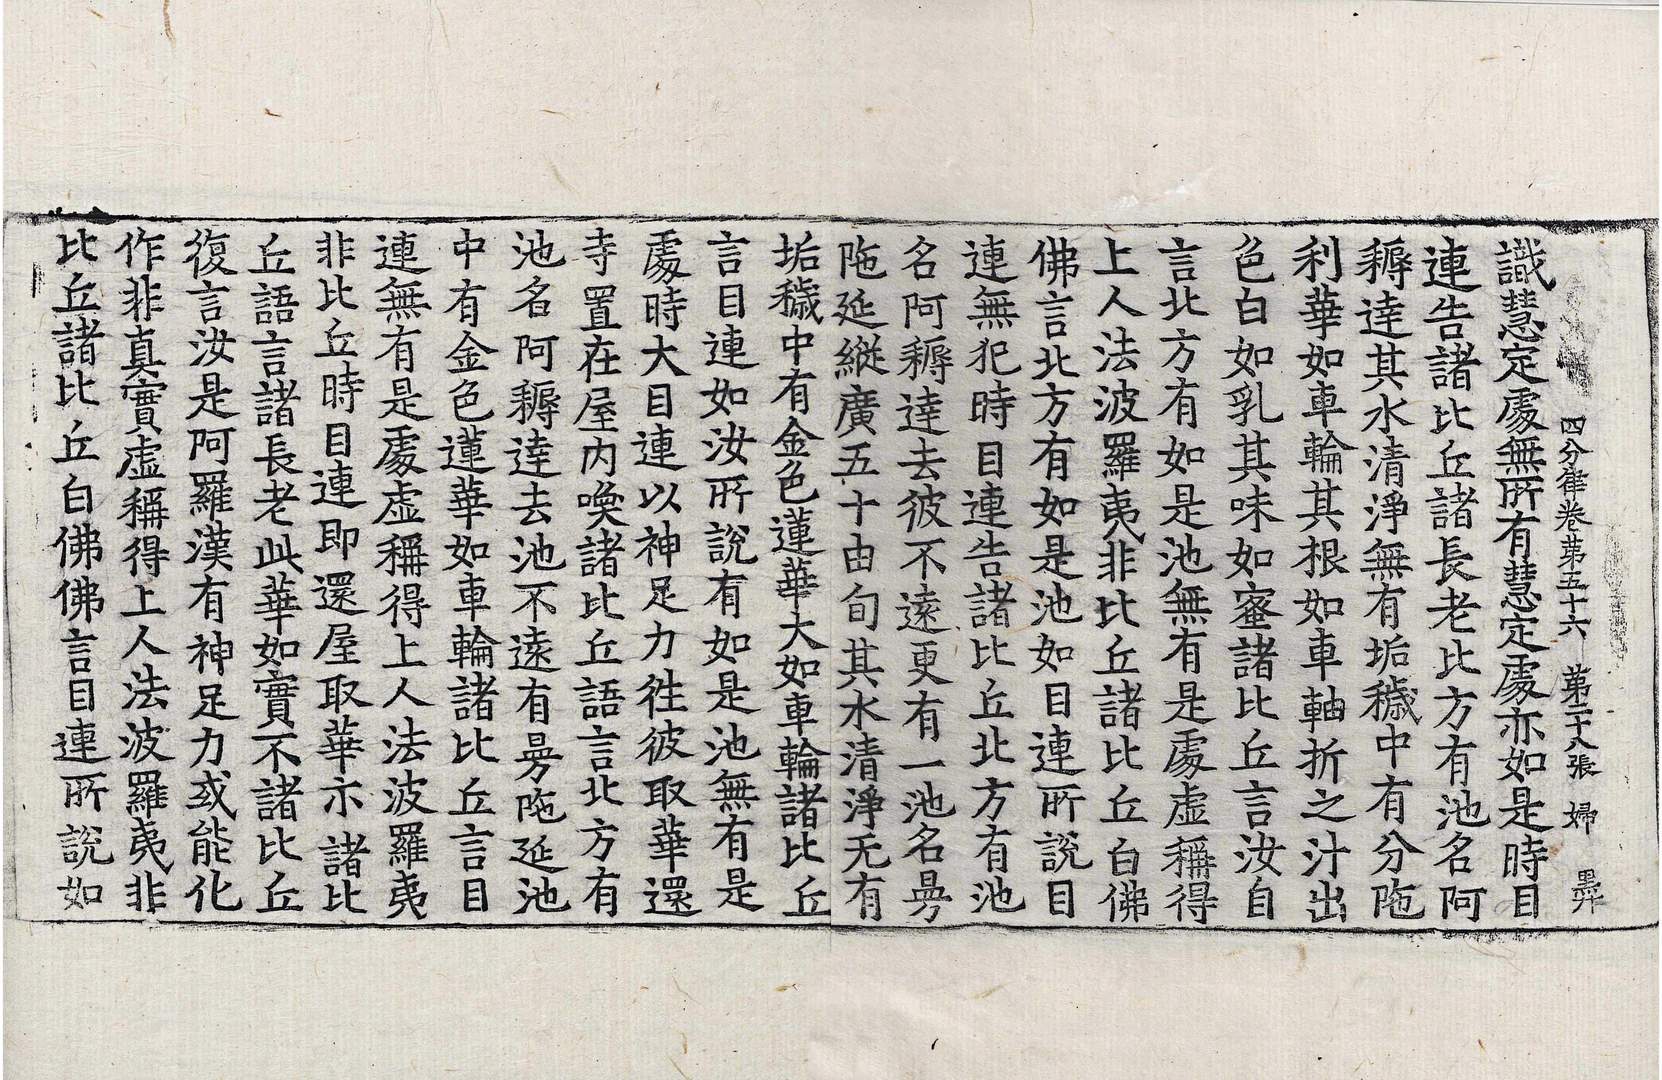 四分律卷第五十六 第二十八張 婦
識慧定處無所有慧定處亦如是時目
連告諸比丘諸長老比方有池名阿
耨達其水清淨無有垢穢中有分陁
利華如車輪其根如車軸折之汁出
色白如乳其味如蜜諸比丘言汝自
言北方有如是池無有是處虛稱得
上人法波羅夷非比丘諸比丘白佛
佛言北方有如是池如目連所說目
連無犯時目連告諸比丘北方有池
名阿耨達去彼不遠更有一池名曼
陁延縱廣五十由旬其水清淨无有
垢穢中有金色蓮華大如車輪諸比丘
言目連如汝所說有如是池無有是
處時大目連以神足力徃彼取華還
寺置在屋內喚諸比丘語言北方有
池名阿耨達去池不遠有曼陁延池
中有金色蓮華如車輪諸比丘言目
連無有是處虛稱得上人法波羅夷
非比丘時目連即還屋取華示諸比
丘語言諸長老此華如實不諸比丘
復言汝是阿羅漢有神足力或能化
作非真實虛稱得上人法波羅夷非
比丘諸比丘白佛佛言目連所說如